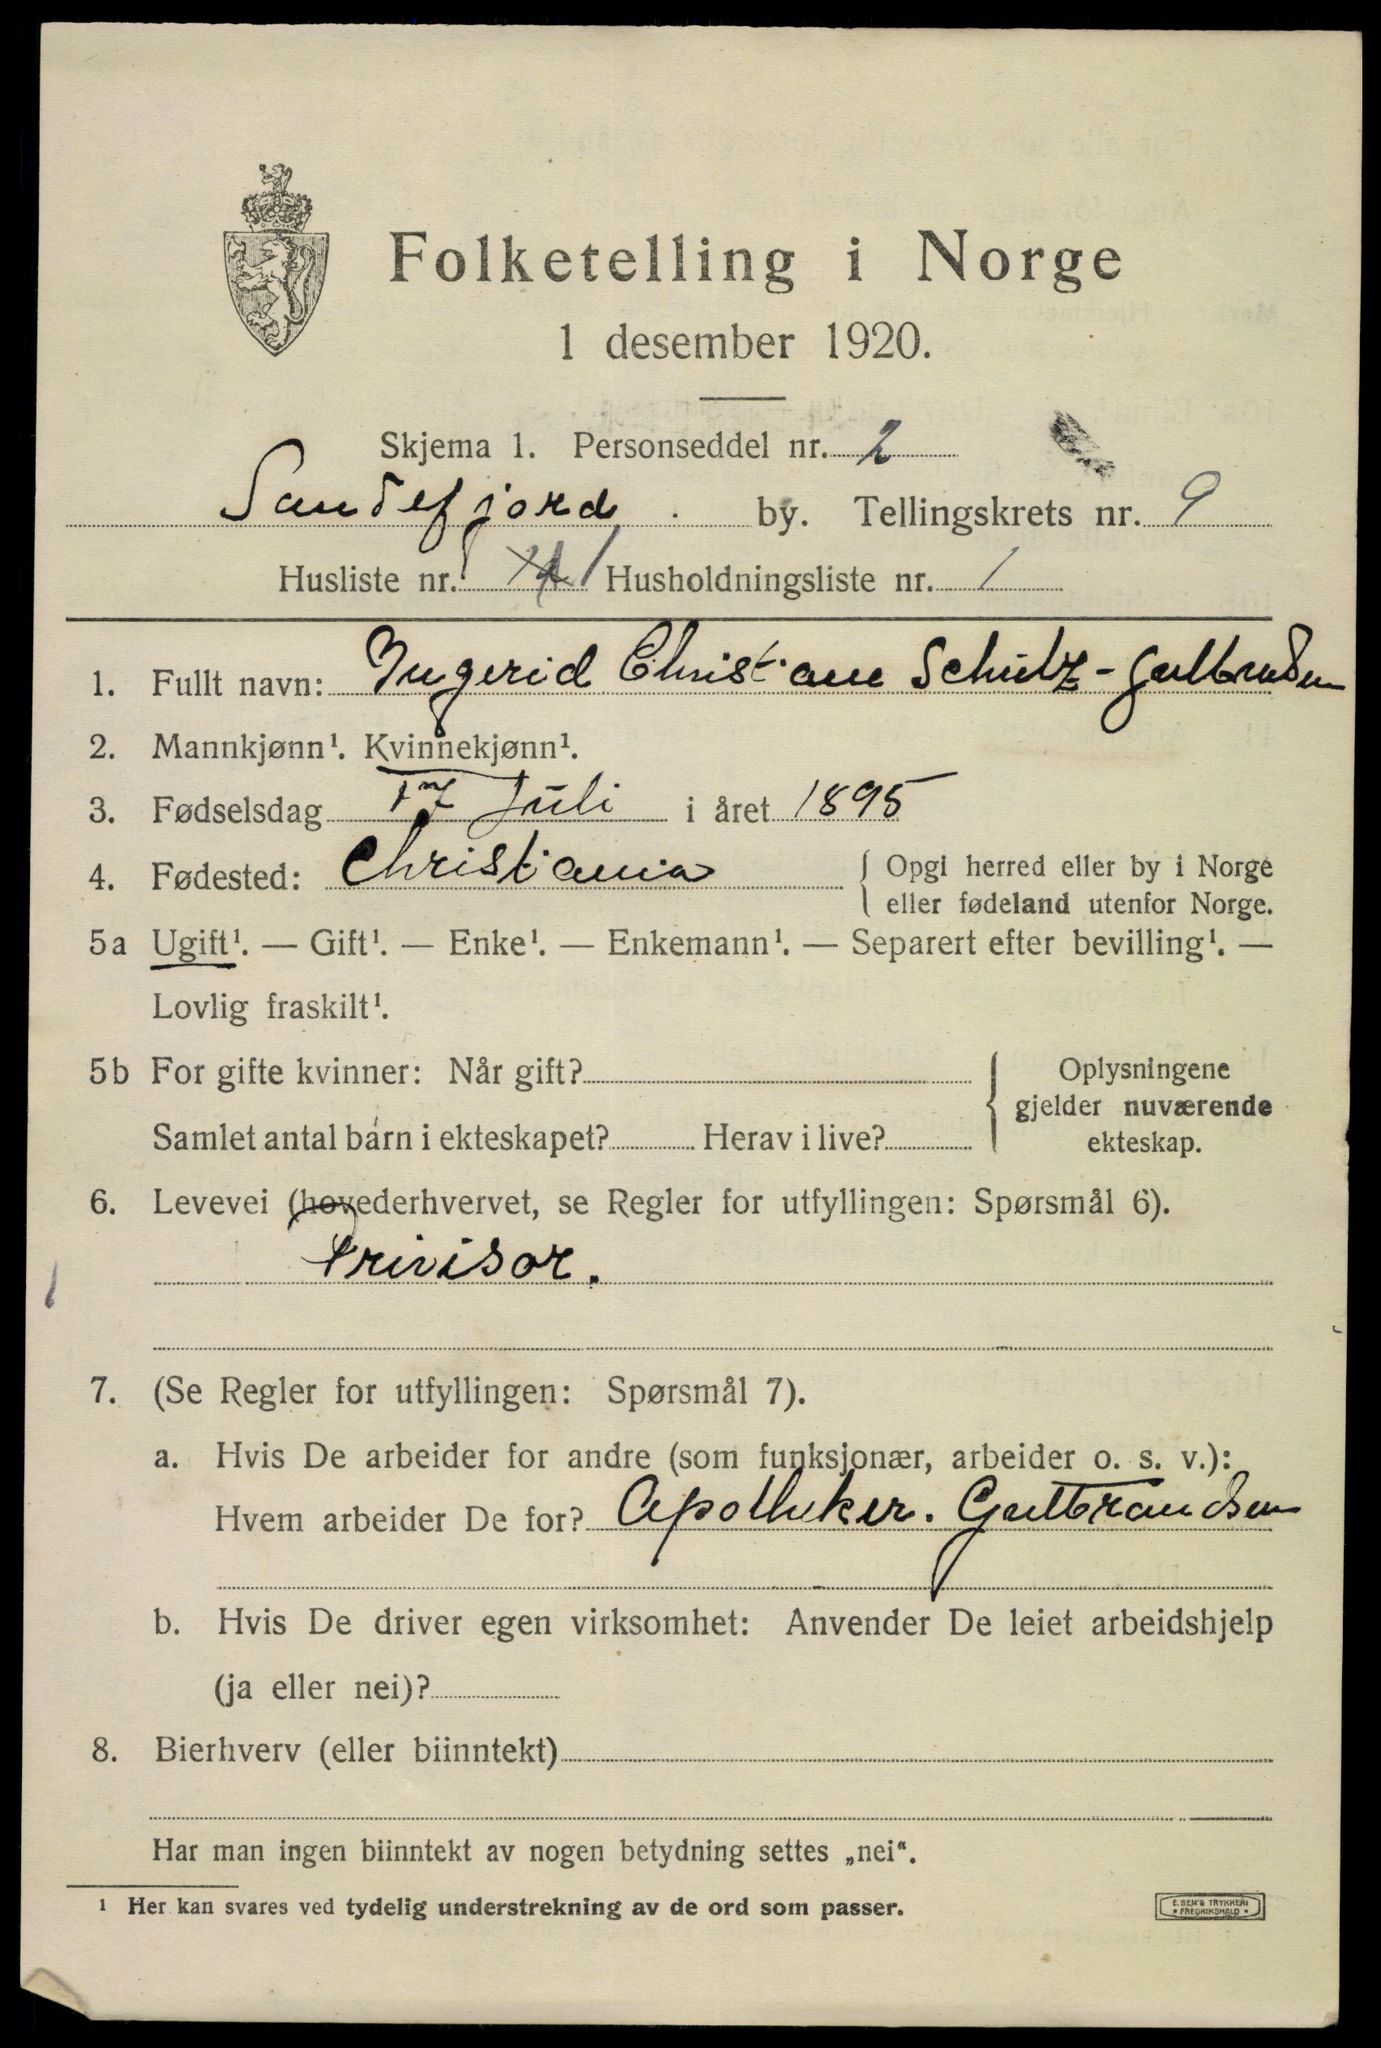 Folketelling i Norge
1 desember 1920.
Skjema 1. Personseddel nr. 2
Sandefjord. by. Tellingskrets nr. 9
Husliste nr. Husholdningsliste nr. 1
1. Fullt navn: Ingerid Christiane Schultz-Gulbrandsen
2. Mannkjønn¹. Kvinnekjønn¹.
3. Fødselsdag Juli i året 1895
4. Fødested: Christiania { Opgi herred eller by i Norge
eller fødeland utenfor Norge.
5a Ugift¹. — Gift¹. — Enke¹. — Enkemann¹. — Separert efter bevilling¹. —
Lovlig fraskilt¹.
5b For gifte kvinner: Når gift? { Oplysningene
gjelder nuværende
Samlet antal barn i ekteskapet? Herav i live? ekteskap.
6. Levevei (hovederhvervet, se Regler for utfyllingen: Spørsmål 6).
Privisor.
7. (Se Regler for utfyllingen: Spørsmål 7).
a. Hvis De arbeider for andre (som funksjonær, arbeider o. s. v.):
Hvem arbeider De for? Apotheker. Gulbrandsen
b. Hvis De driver egen virksomhet: Anvender De leiet arbeidshjelp
(ja eller nei)?
8. Bierhverv (eller biinntekt)
Har man ingen biinntekt av nogen betydning settes „nei“.
¹ Her kan svares ved tydelig understrekning av de ord som passer.
E. SEM'S TRYKKERI
* FREDRIKSHALD *